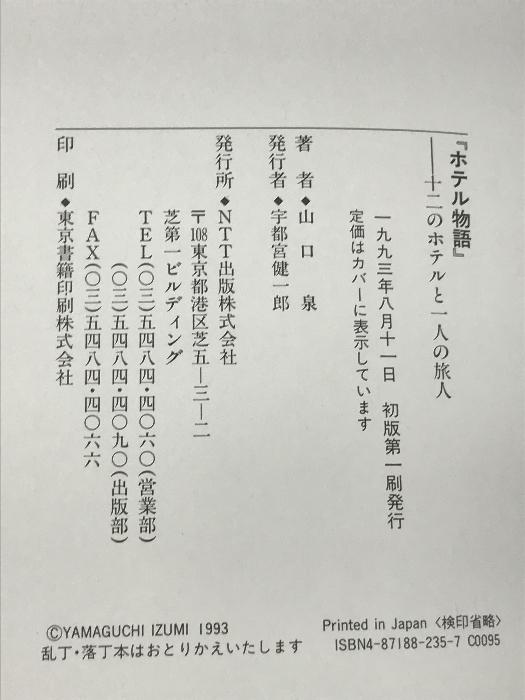 『ホテル物語』
――十二のホテルと一人の旅人
一九九三年八月十一日　初版第一刷発行
定価はカバーに表示しています
著　者◆山　口　　泉
発行者◆宇都宮健一郎
発行所◆NTT出版株式会社
〒108東京都港区芝五―三―二
芝第一ビルディング
TEL(〇三)五四八四・四〇六〇(営業部)
(〇三)五四八四・四〇九〇(出版部)
FAX(〇三)五四八四・四〇六六
印　刷◆東京書籍印刷株式会社
©YAMAGUCHI IZUMI 1993
乱丁・落丁本はおとりかえいたします
Printed in Japan 〈検印省略〉
ISBN4-87188-235-7 C0095